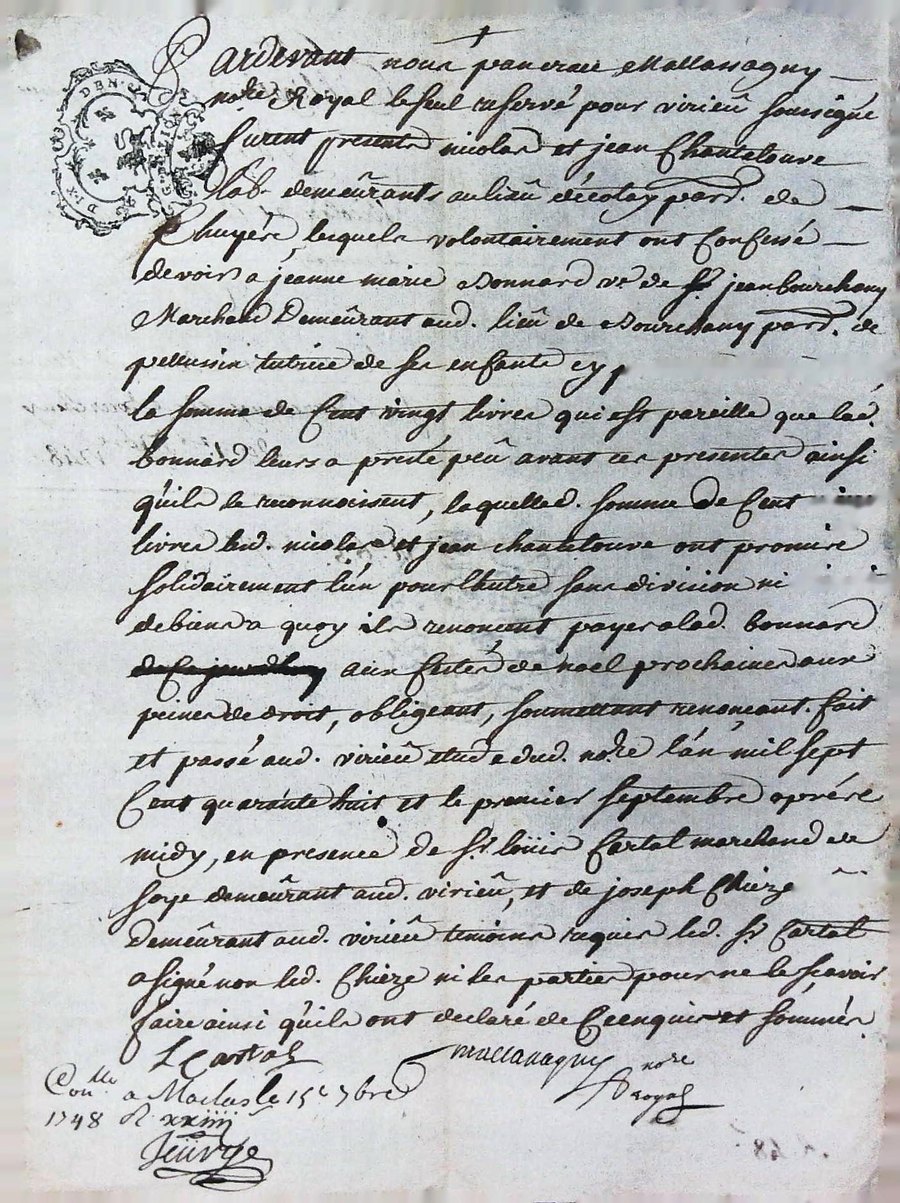 Pardevant nous pancrace Mallassagny
no.re Royal le seul reservé pour virieû soussigné
furent presents nicolas et jean Chantelouve
lab.rs demeûrants au lieû d'écolay parr. de
Chuyér, lesquels volontairement ont Confessé
devoir a jeanne marie Bonnard ve de Sr jean bourchany
Marchand Demeûrant aud. lieû de Bourchany parr. de
pelussin tutrice de ses enfants
la somme de Cent vingt livres qui est pareille que lad.
bonnard leurs a preté peû avant ces presentes ainsi
qu'ils le reconnoissent, laquelled. somme de Cent
livres led. nicolas et jean chantelouve ont promis
solidairement l'un pour l'autre sans division ni
de biens a quoy ils renoncent payer a lad. bonnard
aux festes de noel prochaines aux
peines de droit, obligeant, soumettant renoncant. fait
et passé aud. virieû etude dud. no.re l'an mil sept
Cent quarante huit et le premier septembre aprés
midy, en presence de Sr loüis Cartal marchand de
soye demeûrant aud. virieû, et de joseph Chieze
Demeûrant aud. virieû temoins requis led. Sr Cartal
a signé non led. Chieze ni les parties pour ne le sçavoir
faire ainsi qu'ils ont declaré de Ce enquis et sommés
L Cartal
mallassagny no.re
Royal
Con.lle a Maclas le 15e 7bre
1748 R. xxiiij s